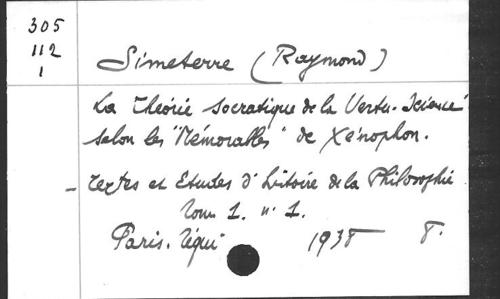 305
112
1
Simeterre (Raymond)
La Théorie socratique de la Vertu-Science
selon les "Mémorables" de Xénophon.
- Textes et Etudes d'histoire de la Philosophie
Tome 1. n° 1.
Paris. Téqui 1938 8.